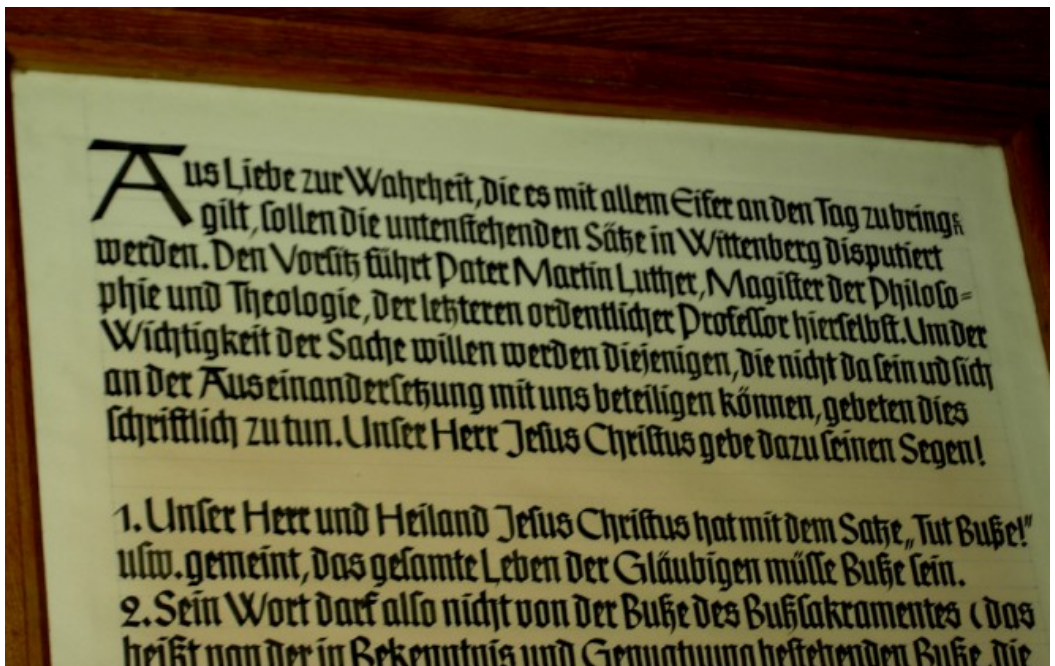 Aus Liebe zur Wahrheit, die es mit allem Eifer an den Tag zu bringen
gilt, sollen die untenstehenden Sätze in Wittenberg disputiert
werden. Den Vorsitz führt Pater Martin Luther, Magister der Philoso=
phie und Theologie, der letzteren ordentlicher Professor hierselbst. Um der
Wichtigkeit der Sache willen werden diejenigen, die nicht da sein ud sich
an der Auseinandersetzung mit uns beteiligen können, gebeten dies
schriftlich zu tun. Unser Herr Jesus Christus gebe dazu seinen Segen!
1. Unser Herr und Heiland Jesus Christus hat mit dem Satze „Tut Buße!"
usw. gemeint, das gesamte Leben der Gläubigen müsse Buße sein.
2. Sein Wort darf also nicht von der Buße des Bußsakramentes (das
heißt von der in Bekenntnis und Genugtuung bestehenden Buße, die